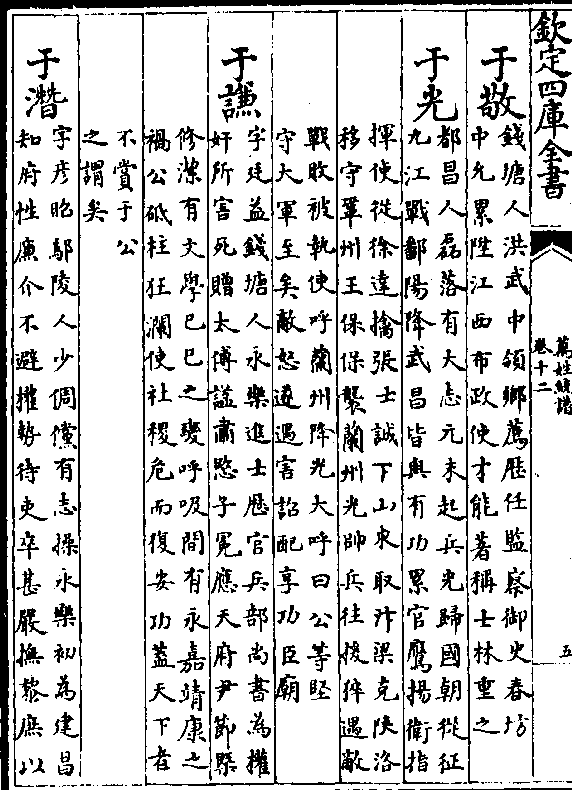 欽定四庫全書
萬姓統譜
卷十二
五
于敬
錢塘人洪武中領鄉薦歷任監察御史春坊
中允累陞江西布政使才能著稱士林重之
于光
都昌人磊落有大志元末起兵光歸國朝從征
九江戰鄱陽降武昌皆與有功累官鷹揚衛指
揮使從徐達擒張士誠下山東取汴梁克陝洛
移守鞏州王保保襲蘭州光帥兵往援猝遇敵
戰敗被執使呼蘭州降光大呼曰公等堅
守大軍至矣敵怒遂遇害詔配享功臣廟
于謙
字廷益錢塘人永樂進士歷官兵部尚書為權
奸所害死贈太傅諡肅愍子冕應天府尹節槩
修潔有文學己巳之變呼吸間有永嘉靖康之
禍公砥柱狂瀾使社稷危而復安功蓋天下者
不賞于公
之謂矣
于濳
字彦昭鄢陵人少倜儻有志操永樂初為建昌
知府性廉介不避權勢待吏卒甚嚴撫黎庶以